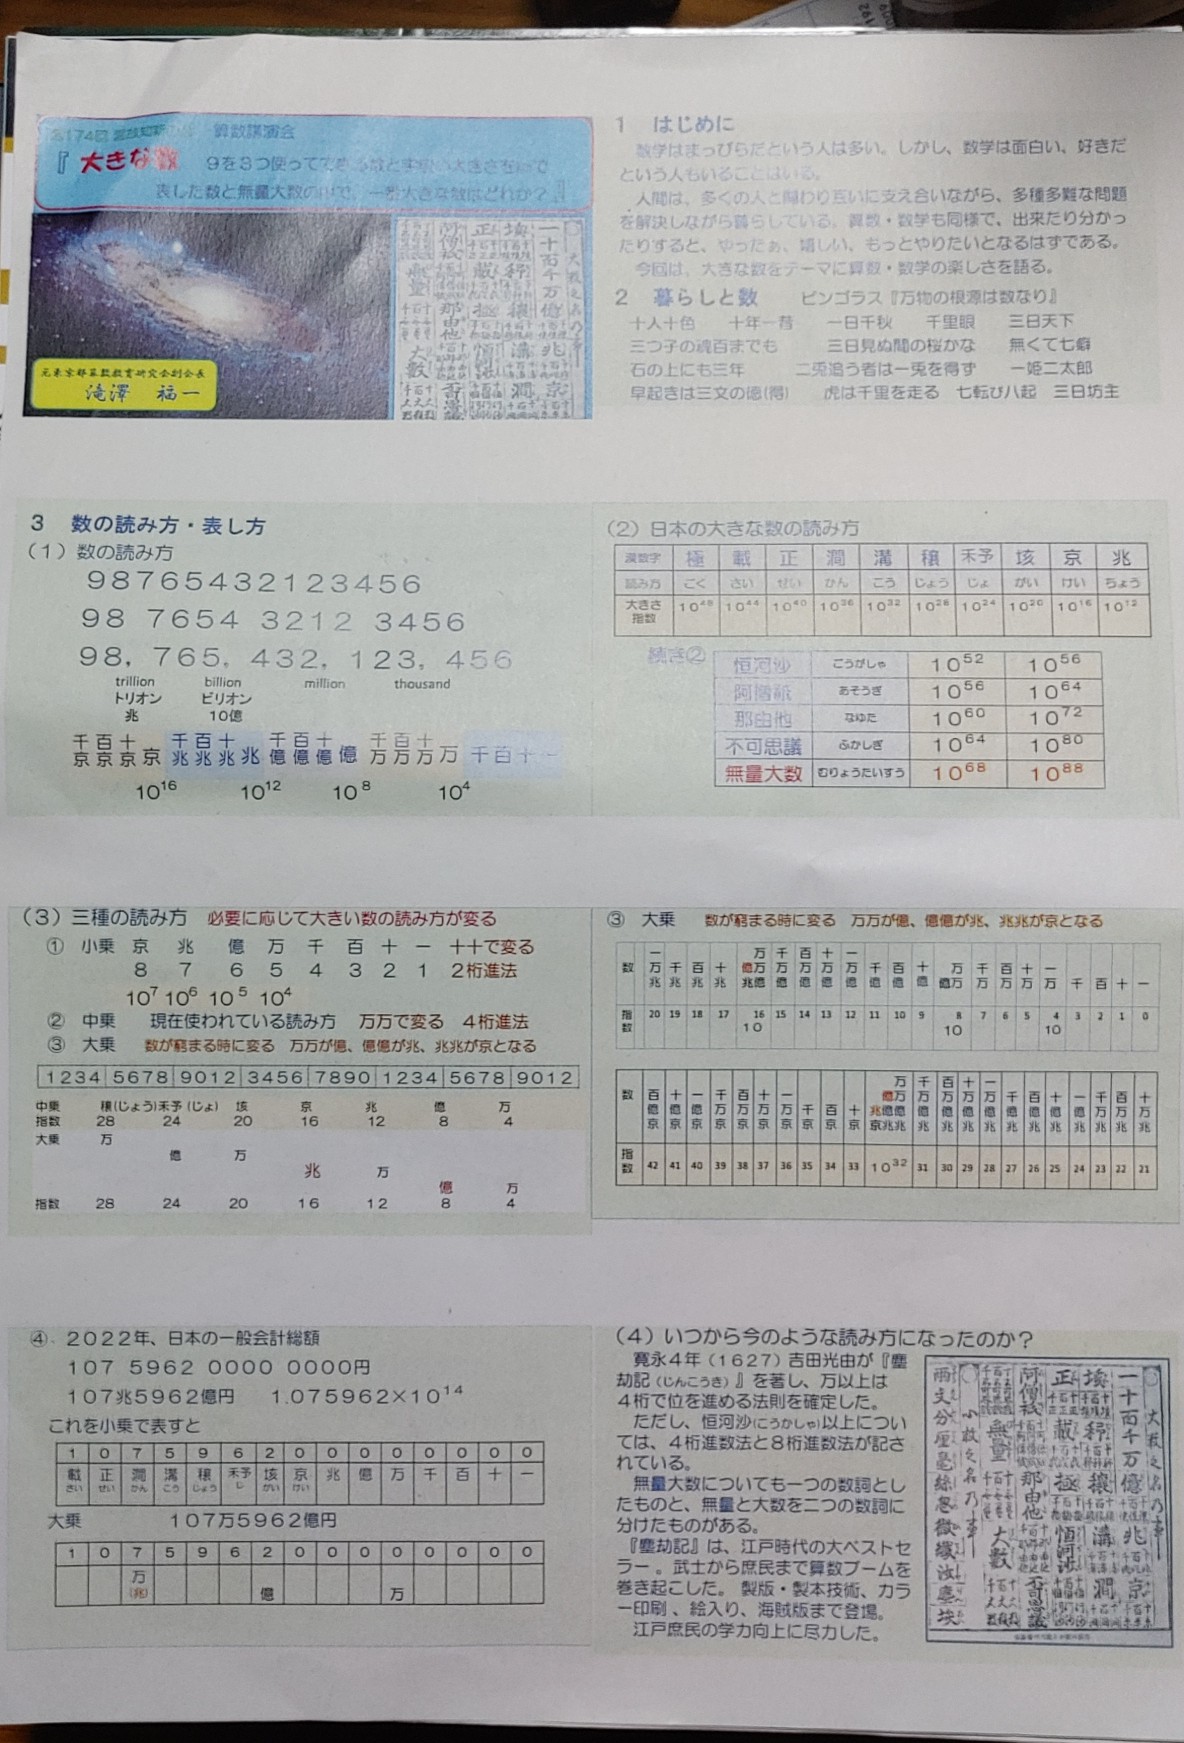 算数講演会
『大きな数
元東京都算数教育研究会副会長
滝澤 福一
1 はじめに
数学はまっぴらだという人は多い。しかし、数学は面白い、好きだ
という人もいることはいる。
人間は、多くの人と関わり互いに支え合いながら、多種多難な問題
を解決しながら暮らしている。算数・数学も同様で、出来たり分かっ
たりすると、やったぁ、嬉しい、もっとやりたいとなるはずである。
今回は、大きな数をテーマに算数・数学の楽しさを語る。
2 暮らしと数 ピンゴラス『万物の根源は数なり』
十人十色 十年一昔 一日千秋 千里眼 三日天下
三つ子の魂百までも 三日見ぬ間の桜かな 無くて七癖
石の上にも三年 二兎追う者は一兎を得ず 一姫二太郎
早起きは三文の億(得) 虎は千里を走る 七転び八起 三日坊主
3 数の読み方・表し方
(1)数の読み方
98765432123456
98 7654 3212 3456
98, 765, 432, 123, 456
trillion billion million thousand
トリオン ビリオン
兆 10億
千京 百京 十京 京 千兆 百兆 十兆 兆 千億 百億 十億 億 千万 百万 十万 万 千 百 十 一
10¹⁶ 10¹² 10⁸ 10⁴
(2)日本の大きな数の読み方
漢数字 極 載 正 澗 溝 穣 禾予 垓 京 兆
読み方 ごく さい せい かん こう じょう じょ がい けい ちょう
大きさ指数 10⁴⁸ 10⁴⁴ 10⁴⁰ 10³⁶ 10³² 10²⁸ 10²⁴ 10²⁰ 10¹⁶ 10¹²
続き②
恒河沙 こうがしゃ 10⁵² 10⁵⁶
阿僧祇 あそうぎ 10⁵⁶ 10⁶⁴
那由他 なゆた 10⁶⁰ 10⁷²
不可思議 ふかしぎ 10⁶⁴ 10⁸⁰
無量大数 むりょうたいすう 10⁶⁸ 10⁸⁸
(3)三種の読み方 必要に応じて大きい数の読み方が変る
① 小乗 京 兆 億 万 千 百 十 一 十十で変る
8 7 6 5 4 3 2 1 2桁進法
10⁷ 10⁶ 10⁵ 10⁴
② 中乗 現在使われている読み方 万万で変る 4桁進法
③ 大乗 数が窮まる時に変る 万万が億、億億が兆、兆兆が京となる
1234 5678 9012 3456 7890 1234 5678 9012
中乗 穣(じょう) 禾予(じょ) 垓 京 兆 億 万
指数 28 24 20 16 12 8 4
大乗 万
億 万
兆 万
億 万
指数 28 24 20 16 12 8 4
③ 大乗 数が窮まる時に変る 万万が億、億億が兆、兆兆が京となる
数 一万兆 千兆 百兆 十兆 兆 億億 万万億 千万億 百万億 十万億 一万億 千億 百億 十億 億 万万 千万 百万 十万 一万 千 百 十 一
指数 20 19 18 17 16 10 15 14 13 12 11 10 9 8 10 7 6 5 4 10 3 2 1 0
数 百億京 十億京 一億京 千万京 百万京 十万京 一万京 千京 百京 十京 京 兆兆 億億兆 万万億兆 千万億兆 百万億兆 十万億兆 一万億兆 千億兆 百億兆 十億兆 一億兆 千万兆 百万兆 十万兆
指数 42 41 40 39 38 37 36 35 34 33 10³² 31 30 29 28 27 26 25 24 23 22 21
④ 2022年、日本の一般会計総額
107 5962 0000 0000円
107兆5962億円 1.075962×10¹⁴
これを小乗で表すと
1 0 7 5 9 6 2 0 0 0 0 0 0 0 0
載 正 澗 溝 穣 禾予 垓 京 兆 億 万 千 百 十 一
さい せい かん こう じょう じ がい けい
大乗 107万5962億円
1 0 7 5 9 6 2 0 0 0 0 0 0 0 0
万(兆) 億 万
(4)いつから今のような読み方になったのか?
寛永4年(1627)吉田光由が『塵
劫記(じんこうき)』を著し、万以上は
4桁で位を進める法則を確定した。
ただし、恒河沙(こうかしゃ)以上につい
ては、4桁進数法と8桁進数法が記さ
れている。
無量大数についても一つの数詞とし
たものと、無量と大数を二つの数詞に
分けたものがある。
『塵劫記』は、江戸時代の大ベストセ
ラー。武士から庶民まで算数ブームを
巻き起こした。製版・製本技術、カラ
ー印刷、絵入り、海賊版まで登場。
江戸庶民の学力向上に尽力した。